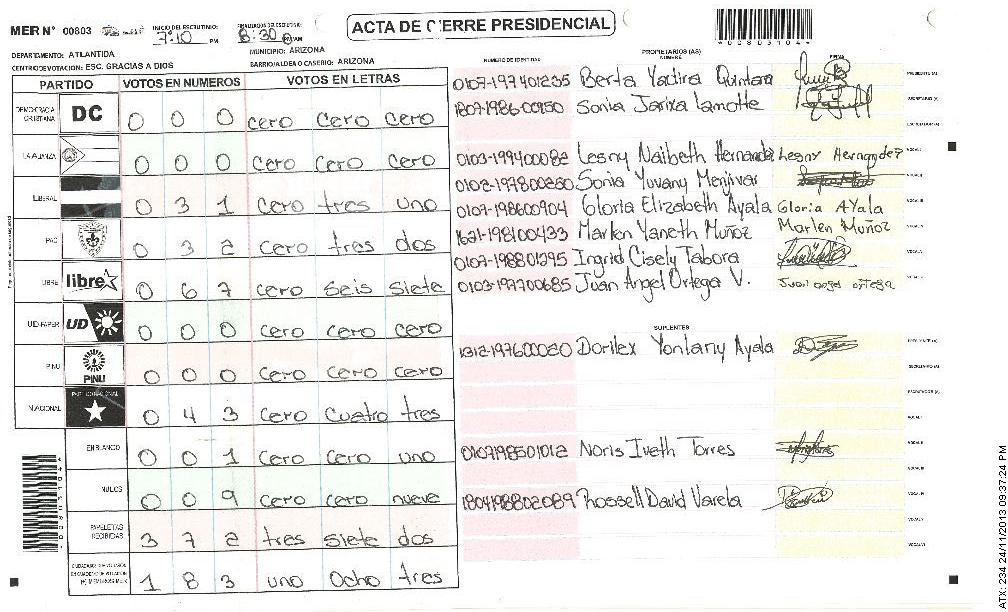 MER Nº 00803
INICIO DEL ESCRUTINIO: 7:10 PM
8:30
ACTA DE CIERRE PRESIDENCIAL
*00803104*
DEPARTAMENTO: ATLANTIDA
MUNICIPIO: ARIZONA
CENTRO DE VOTACION: ESC. GRACIAS A DIOS
BARRIO/ALDEA O CASERIO: ARIZONA
PARTIDO VOTOS EN NUMEROS VOTOS EN LETRAS
DEMOCRACIA CRISTIANA DC 0 0 0 cero cero cero
LA ALIANZA 0 0 0 cero cero cero
LIBERAL 0 3 1 cero tres uno
PAC 0 3 2 cero tres dos
LIBRE libre 0 6 7 cero seis siete
UD-FAPER UD 0 0 0 cero cero cero
PINU PINU 0 0 0 cero cero cero
NACIONAL PARTIDO NACIONAL 0 4 3 cero cuatro tres
EN BLANCO 0 0 1 cero cero uno
NULOS 0 0 9 cero cero nueve
PAPELETAS RECIBIDAS 3 7 2 tres siete dos
1 8 3 uno ocho tres
NUMERO DE IDENTIDAD PROPIETARIOS (AS) NOMBRE FIRMA
0107-197401235 Berta Yadira Quintana PRESIDENTE (A)
1807-1986-00950 Sonia Jarixa Lamotte SECRETARIO (A)
ESCRUTADOR (A)
0103-199400082 Lesny Naibeth Hernandez Lesny Hernandez VOCAL I
0102-197800260 Sonia Yuvany Menjivar VOCAL II
0107-198600904 Gloria Elizabeth Ayala Gloria Ayala VOCAL III
1621-198100433 Marlen Yaneth Muñoz Marlen Muñoz VOCAL IV
0107-198801395 Ingrid Cisely Tabora VOCAL V
0103-197700685 Juan Angel Ortega V. Juan angel ortega
SUPLENTES
1312-197600080 Dorilex Yonlany Ayala PRESIDENTE (A)
SECRETARIO (A)
ESCRUTADOR (A)
VOCAL I
0107198501012 Noris Iveth Torres VOCAL II
VOCAL III
1804198802089 Rossell David Varela VOCAL IV
VOCAL V
VOCAL VI
ATX: 234 24/11/2013 09:37:24 PM